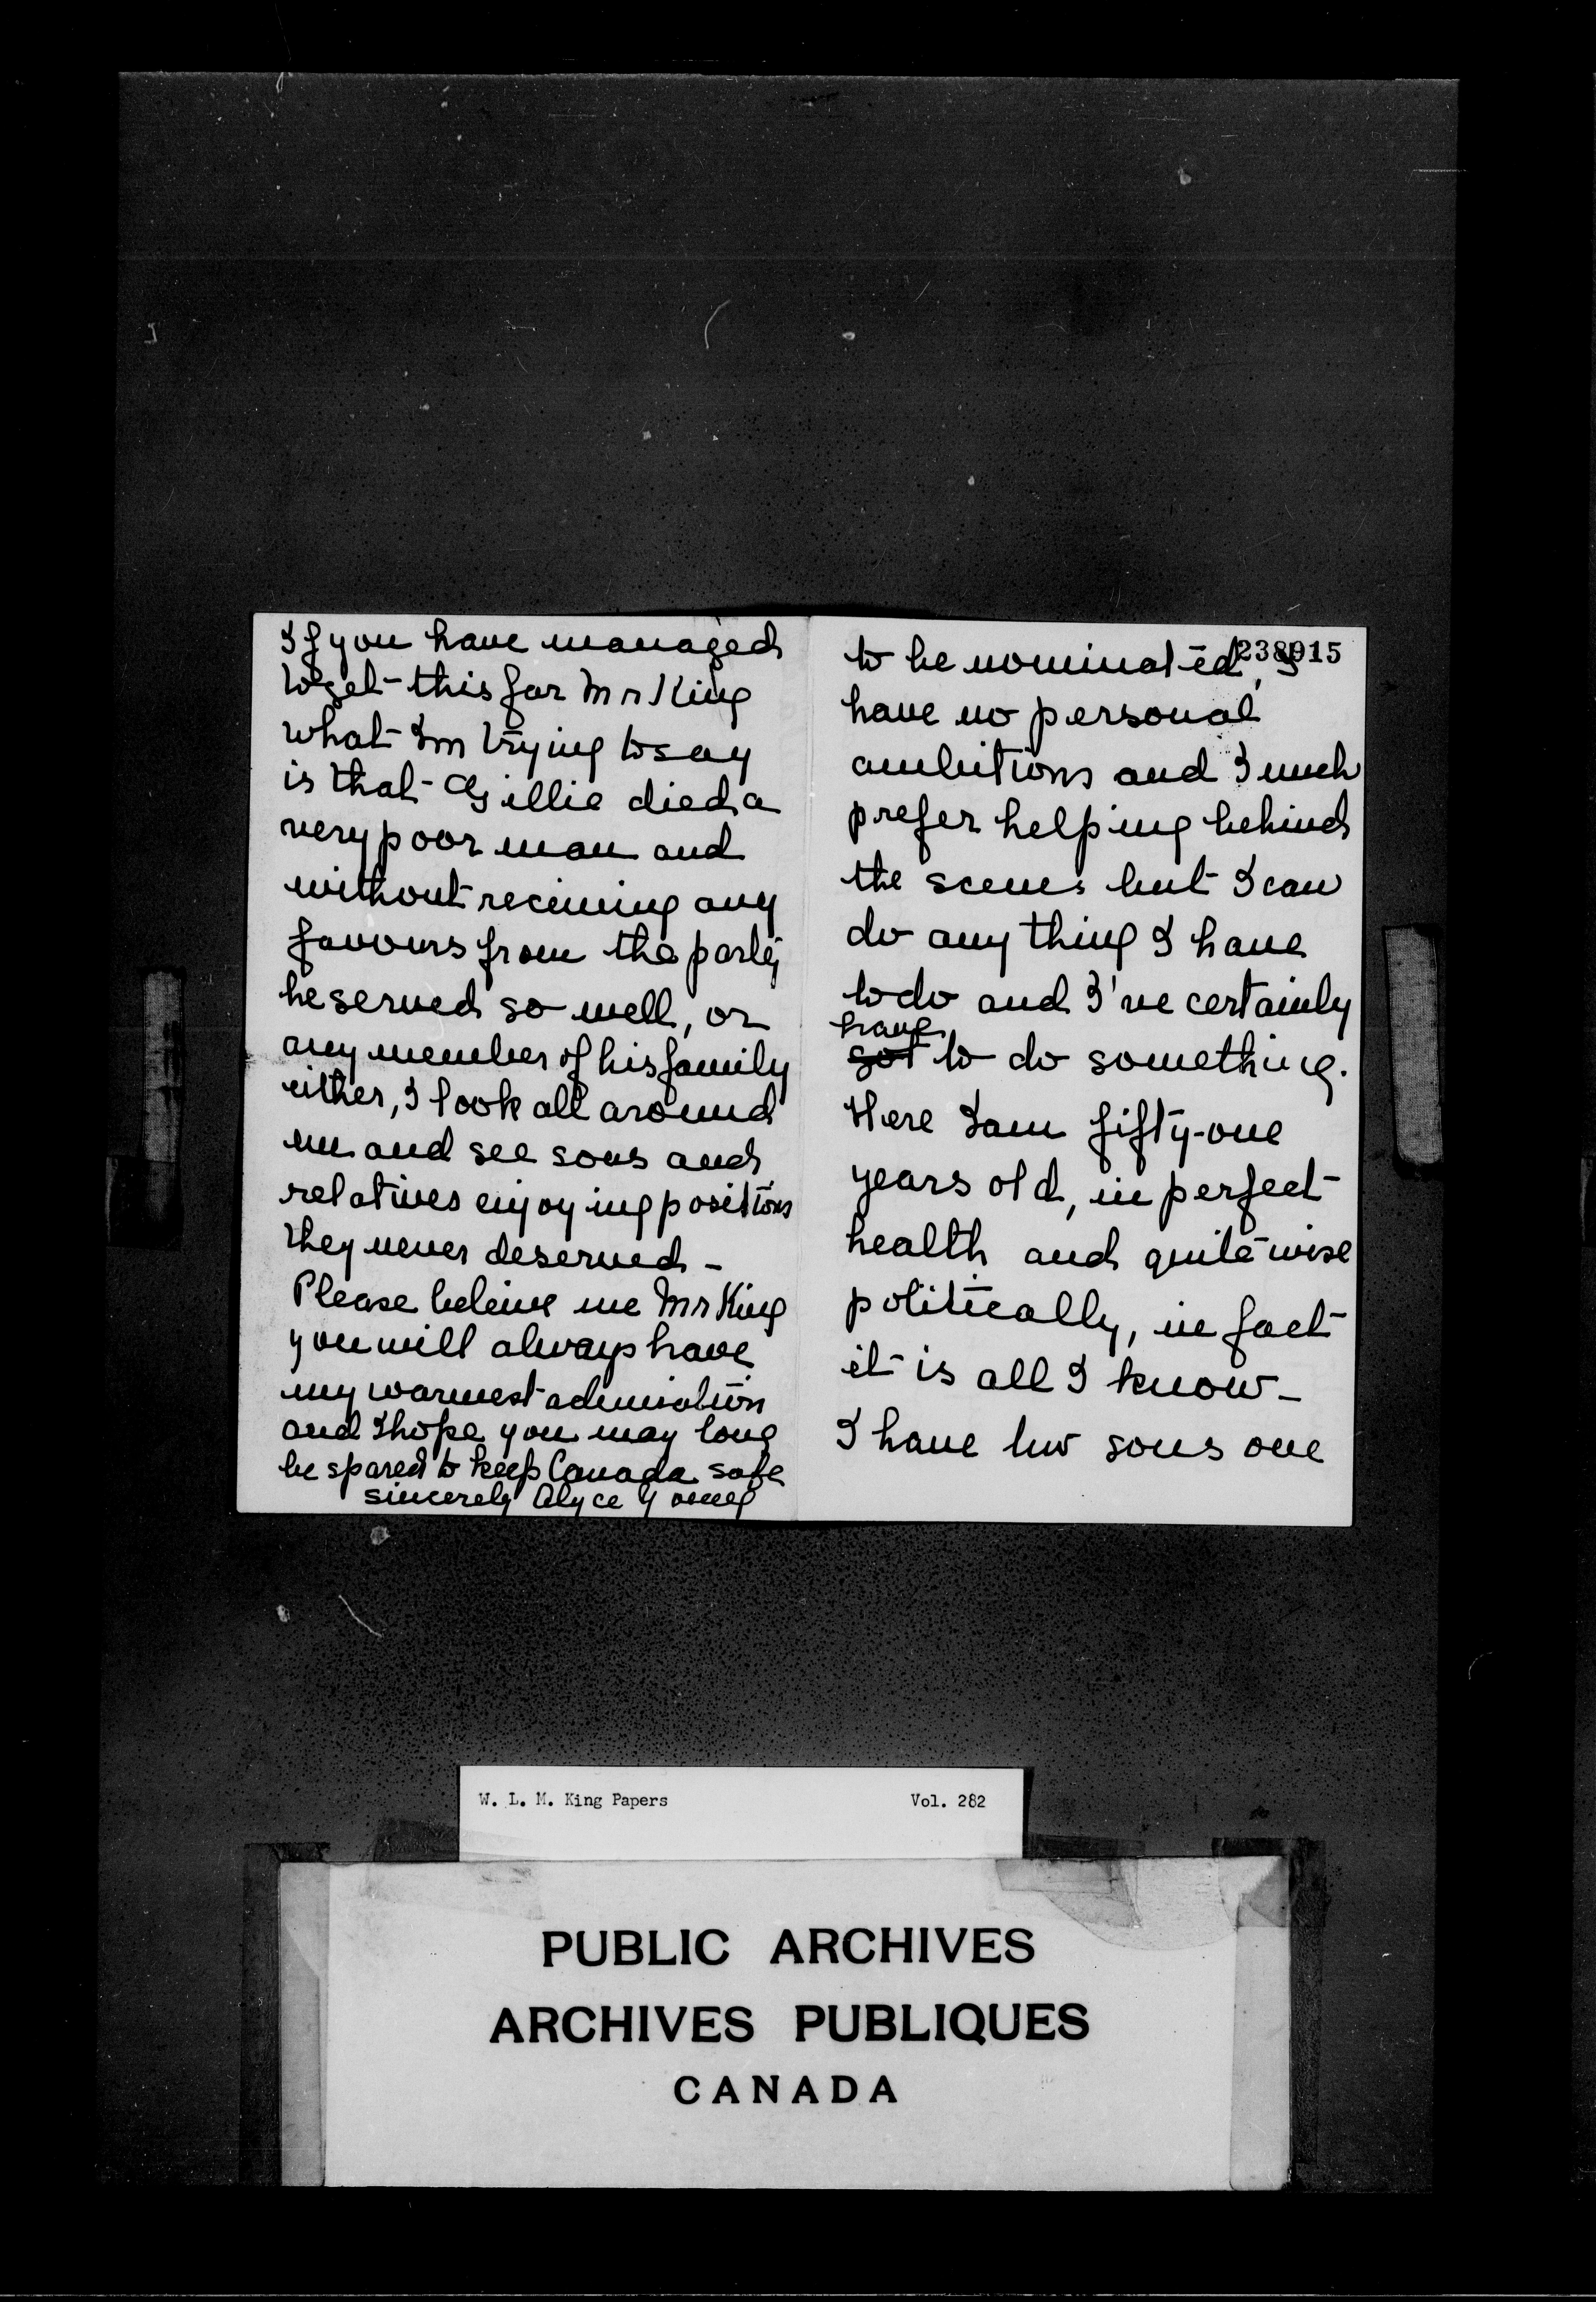 If you have managed
to get this far Mr King
what Im trying to say
is that Gillie died a
very poor man and
without receiving any
favours from the party
he served so well, or
any member of his family
either, I look all around
me and see sons and
relatives enjoying positions
they never deserved -
Please beleive me Mr King
you will always have
my warmest admiration
and I hope you may long
be spared to keep Canada safe
sincerely Alyce Young
238915
to be nominated, I
have no personal
ambitions and I much
prefer helping behind
the scenes but I can
do any thing I have
to do and I've certainly
have
got to do something.
Here I am fifty-one
years old, in perfect
health and quite wise
politically, in fact
it is all I know -
I have two sons one
W. L. M. King Papers Vol. 282
PUBLIC ARCHIVES
ARCHIVES PUBLIQUES
CANADA